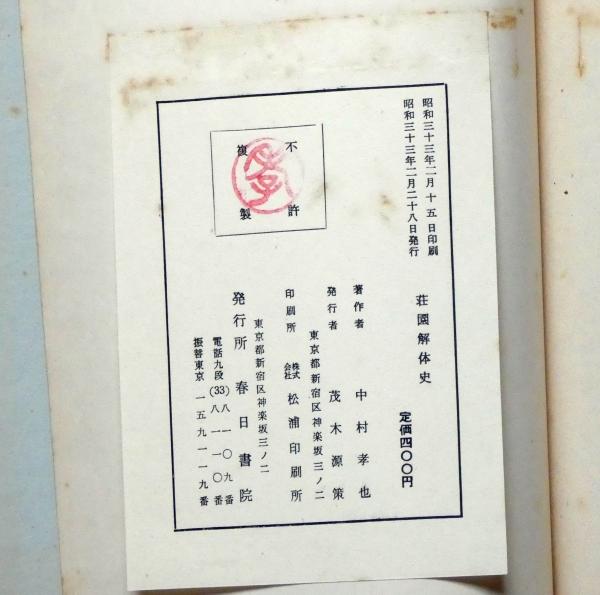 昭和三十三年二月十五日印刷
昭和三十三年二月二十八日発行
荘園解体史
定価四〇〇円
不許
複製
著作者 中村孝也
発行者 茂木源策
東京都新宿区神楽坂三ノ二
印刷所 株式会社 松浦印刷所
東京都新宿区神楽坂三ノ二
発行所 春日書院
電話九段(33)八一〇九番
八一一〇番
振替東京一五九一一九番